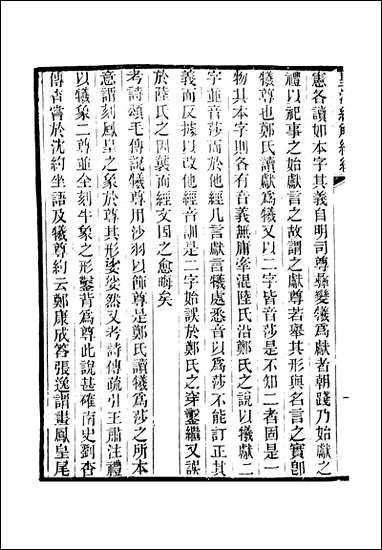 憲各讀如本字其義自明司尊彝變犧爲獻者朝踐乃始獻之
禮以祀事之始獻言之故謂之獻尊若舉其形與名言之實卽
犧尊也鄭氏讀獻爲犧又以二字皆音莎是不知二者固是一
物其本字則各有音義無庸牽混陸氏沿鄭氏之說以犧獻二
字並音莎而於他經几言獻言犧處悉音以爲莎不能訂正其
義而反據以改他經音訓是二字始誤於鄭氏之穿鑿繼又誤
於陸氏之因襲而經文因之愈晦矣
考詩頌毛傳說犧尊用沙羽以飾尊是鄭氏讀犧爲莎之所本
意謂刻鳳皇之象於尊其形娑娑然又考詩傳疏引王肅注禮
以犧象二尊並全刻牛象之形鑿背爲尊此說甚確南史劉杳
傳杳嘗於沈約坐語及犧尊約云鄭康成答張逸謂畫鳳皇尾